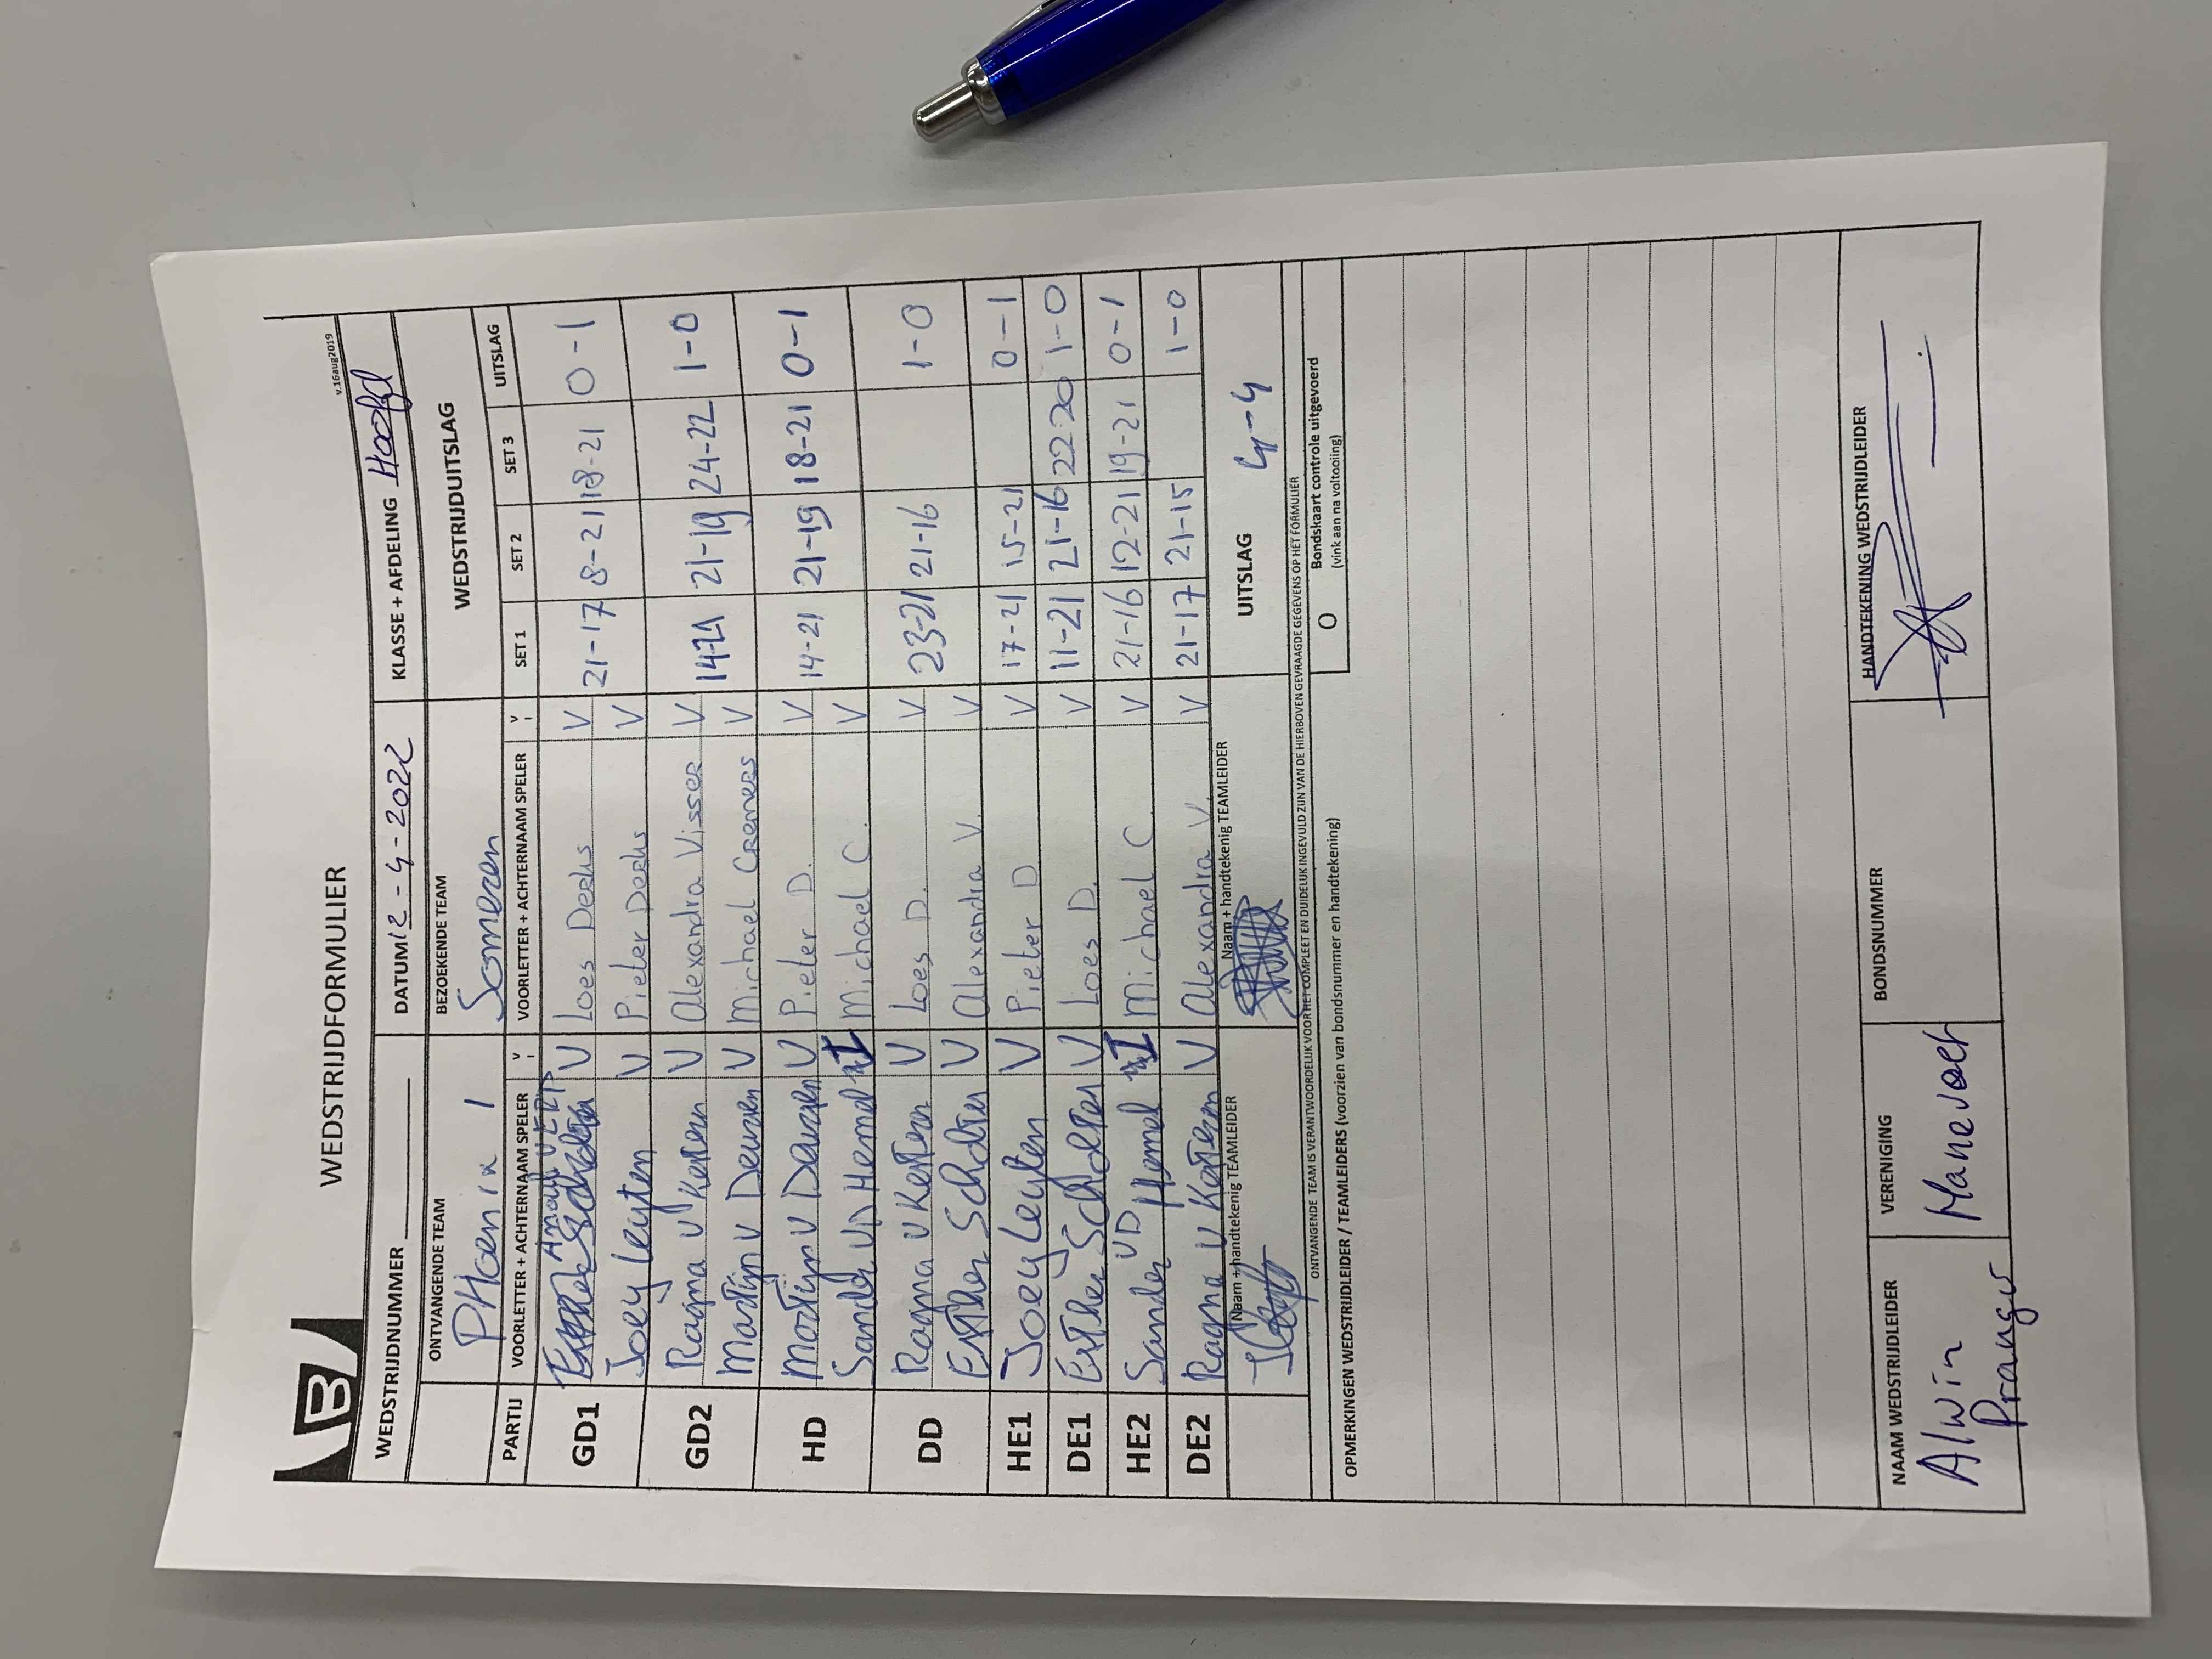 WEDSTRIJDFORMULIER
v.16aug2019
WEDSTRIJDNUMMER DATUM 12-4-2022 KLASSE + AFDELING Hoofd
ONTVANGENDE TEAM BEZOEKENDE TEAM WEDSTRIJDUITSLAG
PHoenix 1 Someren
PARTIJ VOORLETTER + ACHTERNAAM SPELER V VOORLETTER + ACHTERNAAM SPELER V SET 1 SET 2 SET 3 UITSLAG
GD1 V Loes Deeks V 21-17 8-21 18-21 0-1
Joey Leyten V Pieter Deeks V
GD2 Ragna v Kessen V Alexandra Visser V 14-21 21-19 24-22 1-0
Martijn V Deursen V Michael Cremers V
HD Martijn V Deursen V Pieter D. V 14-21 21-19 18-21 0-1
Sander VD Hemel Michael C. V
DD Ragna v Kessen V Loes D. V 23-21 21-16 1-0
Esther Scholten V Alexandra V. V
HE1 Joey Leyten V Pieter D V 17-21 15-21 0-1
DE1 Esther Scholten V Loes D. V 11-21 21-16 22-20 1-0
HE2 Sander VD Hemel Michael C V 21-16 12-21 19-21 0-1
DE2 Ragna v Kessen V Alexandra V. V 21-17 21-15 1-0
Naam + handtekenig TEAMLEIDER Naam + handtekenig TEAMLEIDER UITSLAG 4-4
ONTVANGENDE TEAM IS VERANTWOORDELIJK VOOR HET COMPLEET EN DUIDELIJK INGEVULD ZIJN VAN DE HIERBOVEN GEVRAAGDE GEGEVENS OP HET FORMULIER
O Bondskaart controle uitgevoerd
(vink aan na voltooiing)
OPMERKINGEN WEDSTRIJDLEIDER / TEAMLEIDERS (voorzien van bondsnummer en handtekening)
NAAM WEDSTRIJDLEIDER VERENIGING BONDSNUMMER HANDTEKENING WEDSTRIJDLEIDER
Alwin Manevoort
Pranger